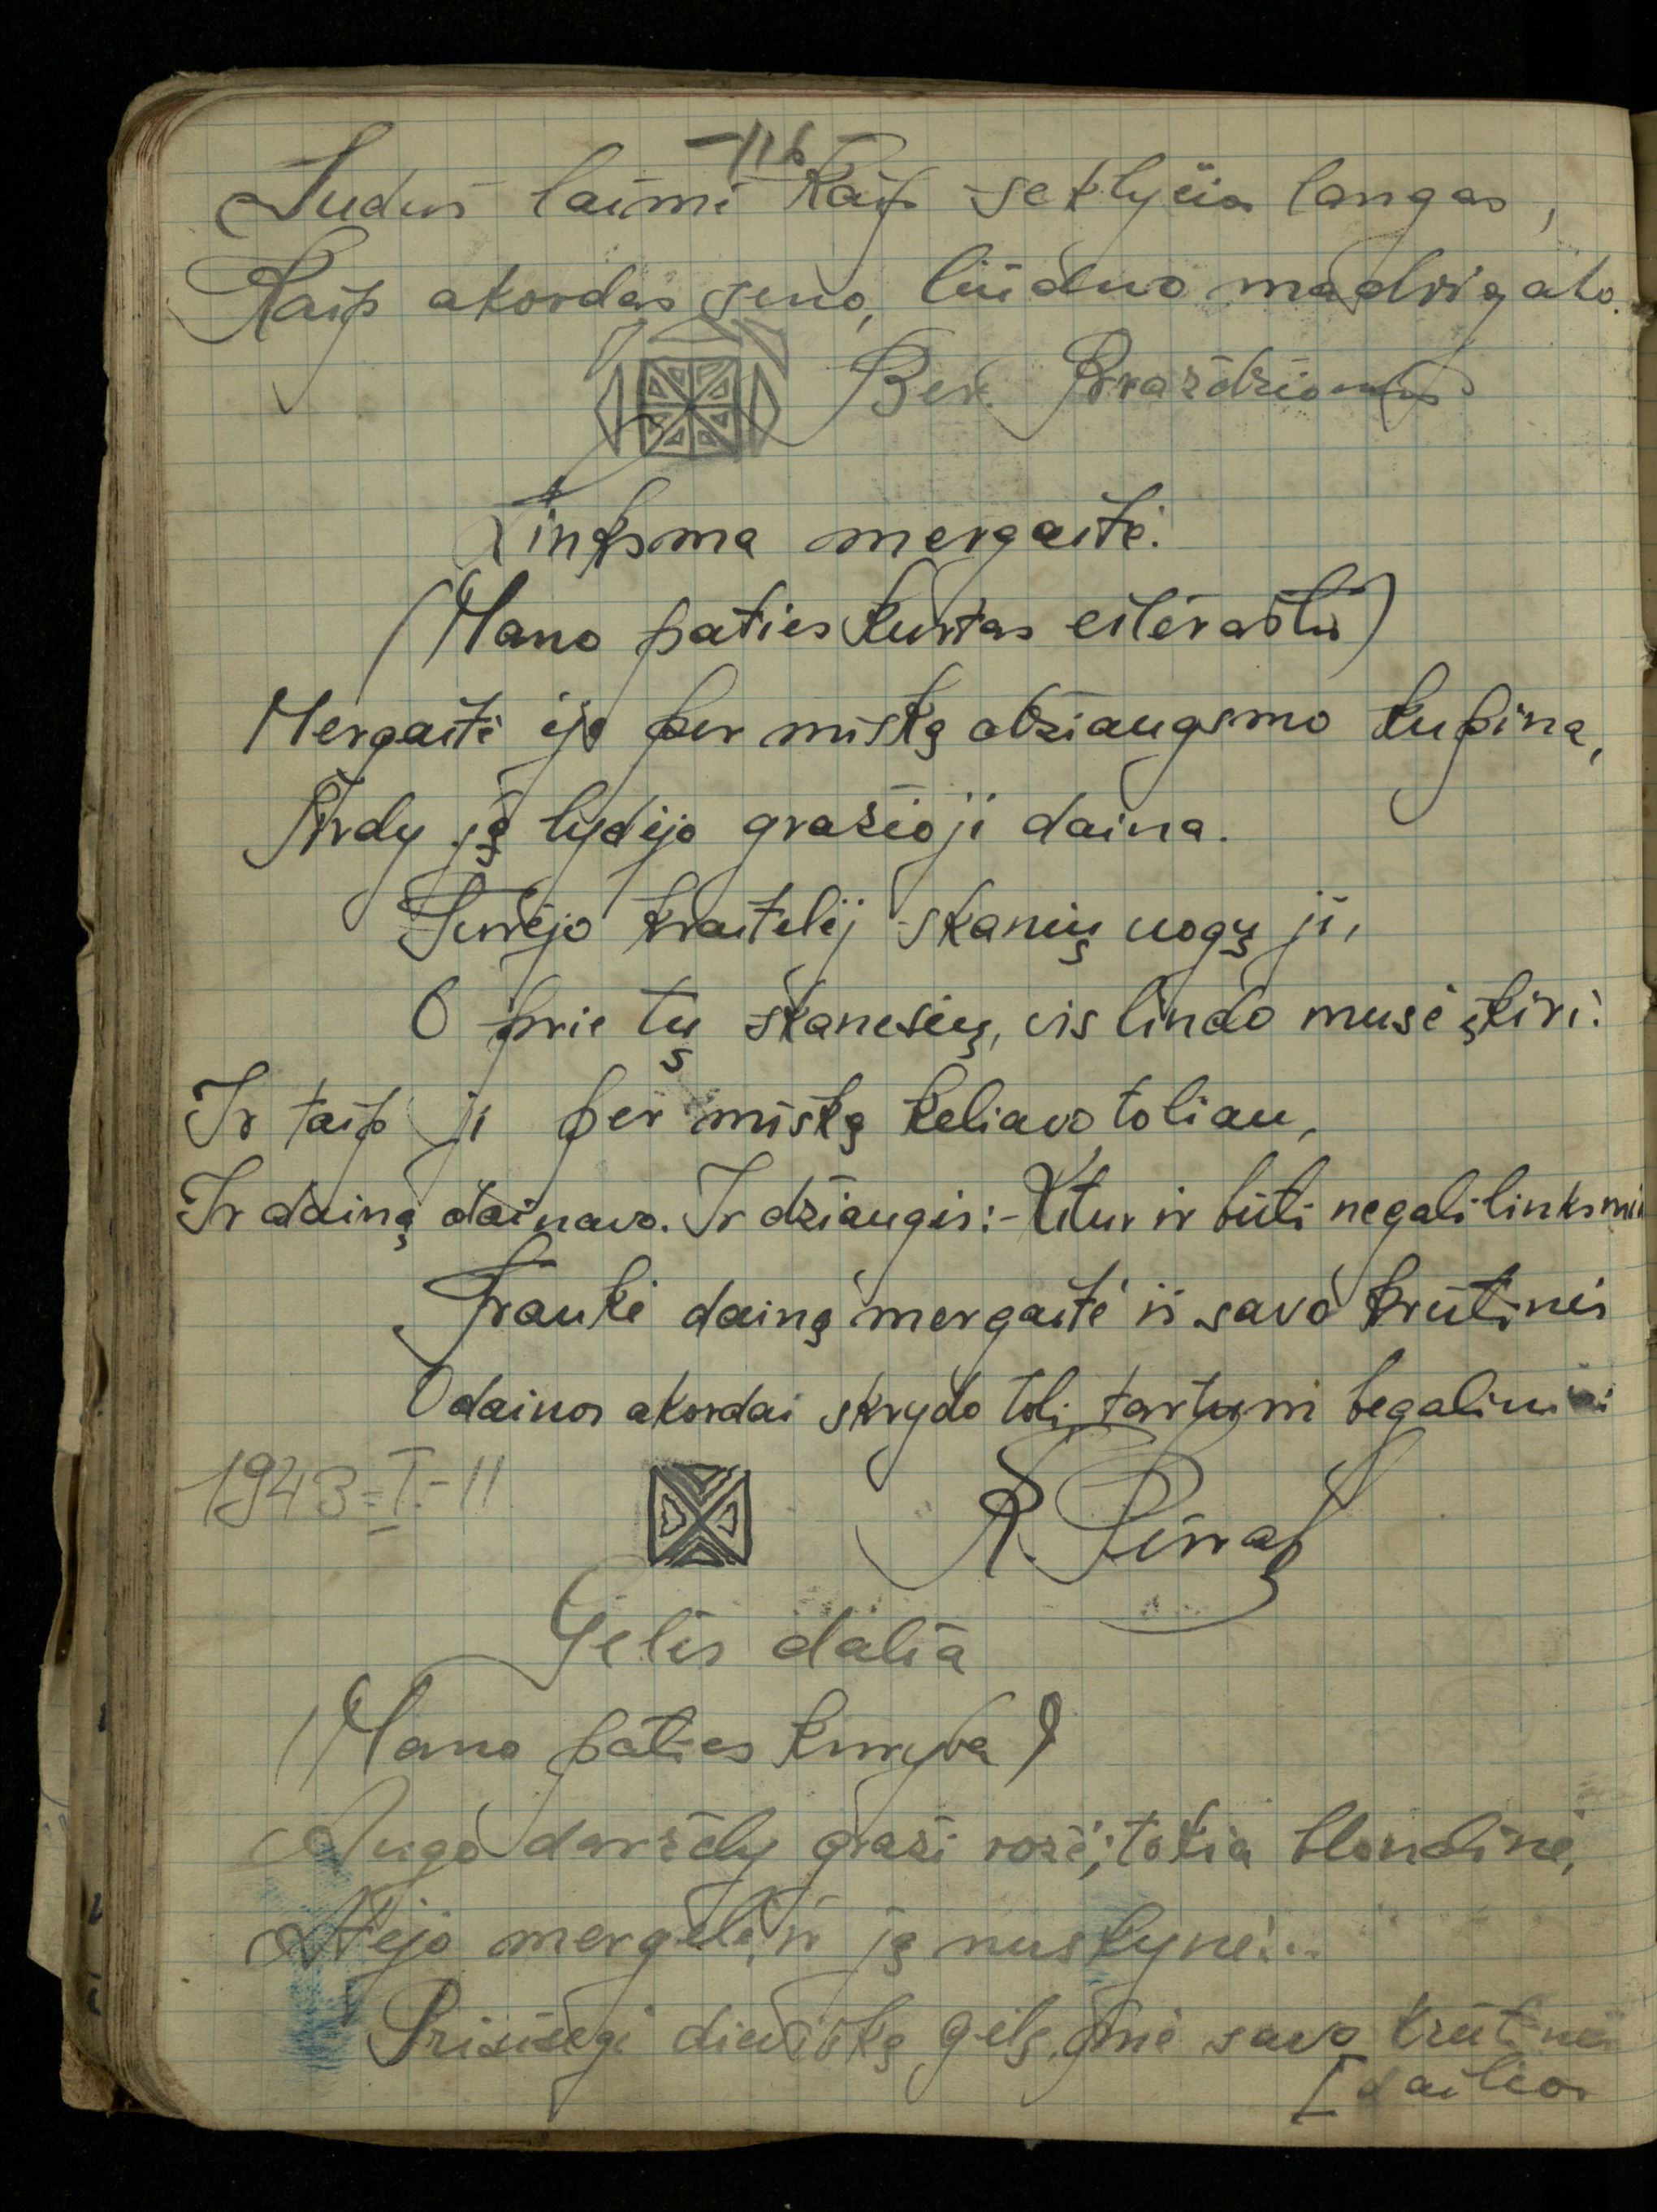 -116
Sudus laimė kaip seklyčios langas,
Kaip akordas seno, liūdno madrigalo.
Ber. Brazdžionis
Linksma mergaitė.
(Mano paties kurtas eilėraštis)
Mergaitė ėjo per mišką džiaugsmo kupina,
Širdy ją lydėjo gražioji daina.
Turėjo kraitelėj skanių uogų ji,
O prie tų skanesių, vis lindo musė įkiri.
Ir taip ji per mišką keliavo toliau,
Ir dainą dainavo. Ir džiaugės:-Kitur ir būti negali linksmia
Traukė dainą mergaitė iš savo krūtinės
O dainos akordai skrydo toli tartum begaliniai
1943-I-11
R.
Gėlės dalia
(Mano paties kuryba)
Augo daržely graži rožė, tokia blondinė,
Atėjo mergelė, ir ją nuskynė...
Prisisegė dievišką gėlę, prie savo krūtinės
[dailios